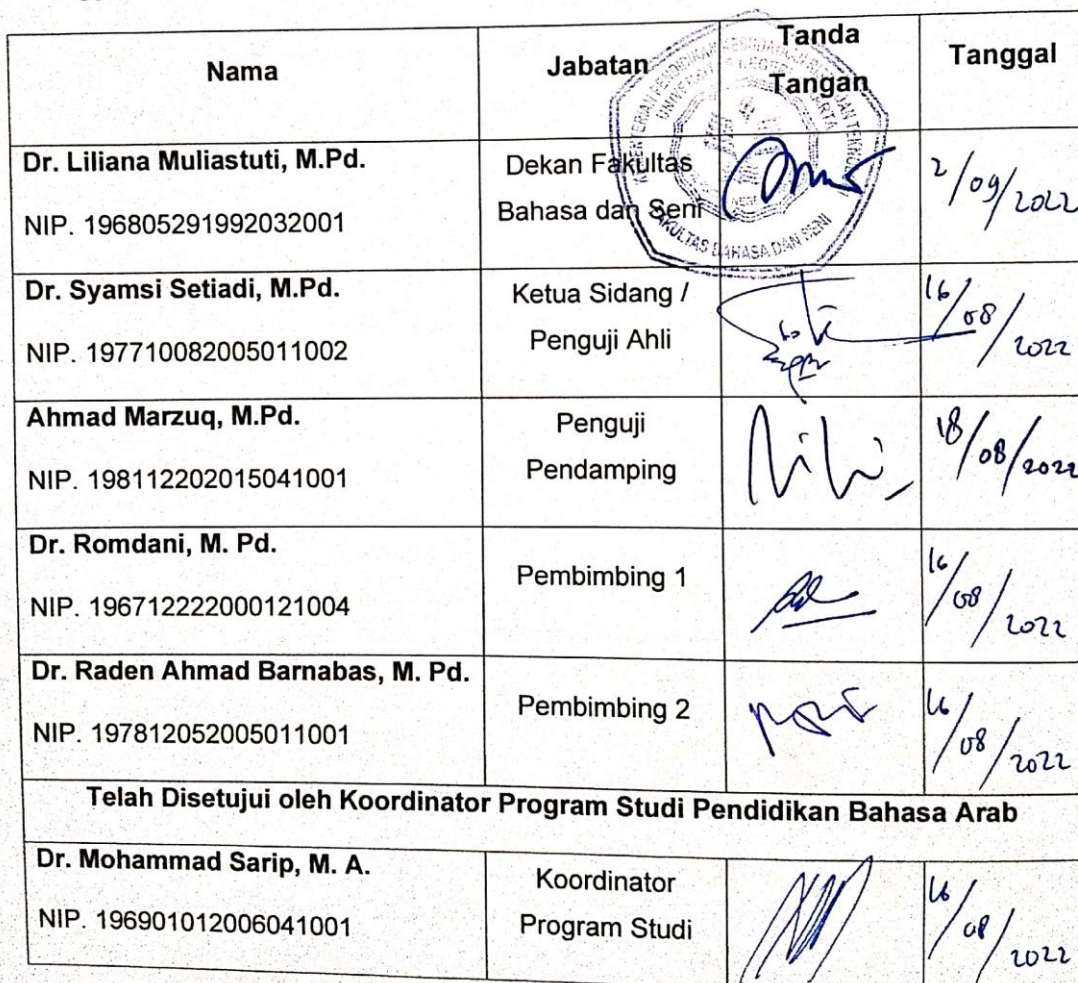 Nama
Jabatan
Tanda
Tangan
Tanggal
Dr. Liliana Muliastuti, M.Pd.
NIP. 196805291992032001
Dekan Fakultas
Bahasa dan Seni
2/09/2022
FAKULTAS BAHASA DAN SENI
Dr. Syamsi Setiadi, M.Pd.
NIP. 197710082005011002
Ketua Sidang /
Penguji Ahli
16/08/2022
Ahmad Marzuq, M.Pd.
NIP. 198112202015041001
Penguji
Pendamping
18/08/2022
Dr. Romdani, M. Pd.
NIP. 196712222000121004
Pembimbing 1
16/08/2022
Dr. Raden Ahmad Barnabas, M. Pd.
NIP. 197812052005011001
Pembimbing 2
16/08/2022
Telah Disetujui oleh Koordinator Program Studi Pendidikan Bahasa Arab
Dr. Mohammad Sarip, M. A.
NIP. 196901012006041001
Koordinator
Program Studi
16/08/2022